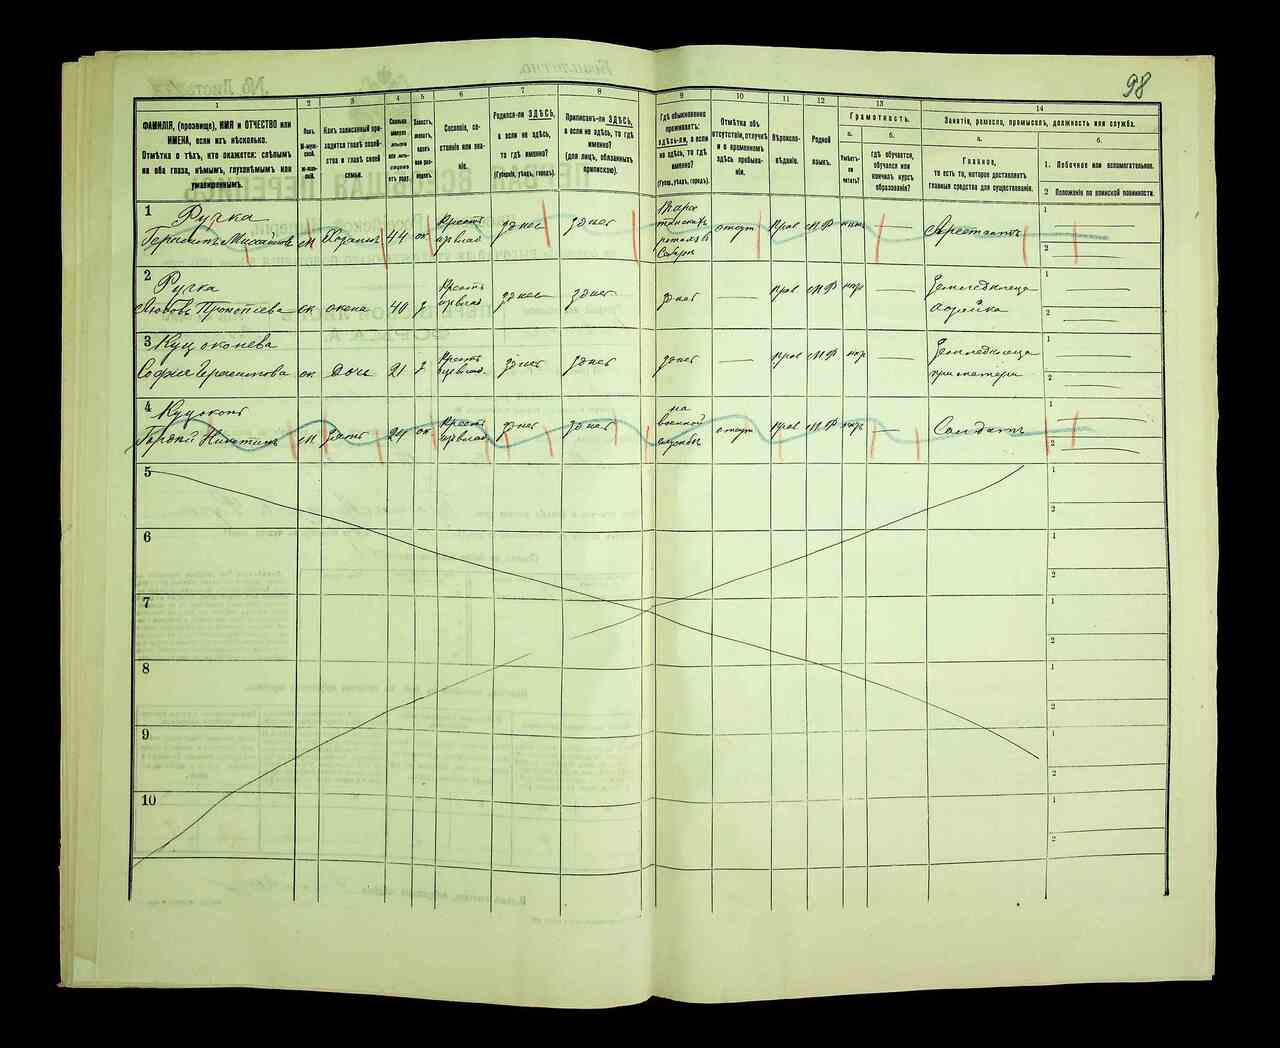 98
1
2
3
4
5
6
7
8
9
10
11
12
13
14
ФАМИЛІЯ, (прозвище), ИМЯ и ОТЧЕСТВО или
ИМЕНА, если ихъ нѣсколько.
Отмѣтка о тѣхъ, кто окажется: слѣпымъ
на оба глаза, нѣмымъ, глухонѣмымъ или
умалишеннымъ.
Полъ.
М-муж-
ской.
Ж-жен-
скій.
Какъ записанный при-
ходится главѣ хозяй-
ства и главѣ своей
семьи.
Сколько
минуло
лѣтъ
или мѣ-
сяцевъ
отъ роду.
Холостъ,
женатъ,
вдовъ
или раз-
веденъ.
Сословіе, со-
стояніе или зва-
ніе.
Родился-ли ЗДѢСЬ,
а если не здѣсь,
то гдѣ именно?
(Губернія, уѣздъ, городъ).
Приписанъ-ли ЗДѢСЬ,
а если не здѣсь, то гдѣ
именно?
(для лицъ, обязанныхъ
припискою).
Гдѣ обыкновенно
проживаетъ:
здѣсь-ли, а если
не здѣсь, то гдѣ
именно?
(Губер., уѣздъ, городъ).
Отмѣтка объ
отсутствіи, отлучкѣ
и о временномъ
здѣсь пребыва-
ніи.
Вѣроиспо-
вѣданіе.
Родной
языкъ.
Грамотность.
а.
б.
Умѣетъ-
ли
читать?
гдѣ обучается,
обучался или
кончилъ курсъ
образованія?
Занятіе, ремесло, промыселъ, должность или служба.
а.
б.
Главное,
то есть то, которое доставляетъ
главныя средства для существованія.
1. Побочное или вспомогательное.
2 Положеніе по воинской повинности.
1 Ручка
Герасимъ Михайловъ м Хозяинъ 44 ж Крест. здѣсь здѣсь отсут Прав М Р Арестантъ 1 2
2 Ручка
Любовь Прокопіева ж жена 40 з Крест. здѣсь здѣсь здѣсь — Прав М Р — Земледѣлица
хозяйка 1 2
3 Куцоконева
Софія Герасимова ж дочь 21 з Крест. здѣсь здѣсь здѣсь — Прав М Р — Земледѣлица
при матери 1 2
4 Куцоконъ
Гордѣй Никитинъ м зять 24 ж Крест. здѣсь здѣсь на
военной
службѣ отсут Прав М Р — Солдатъ 1 2
5 1 2
6 1 2
7 1 2
8 1 2
9 1 2
10 1 2